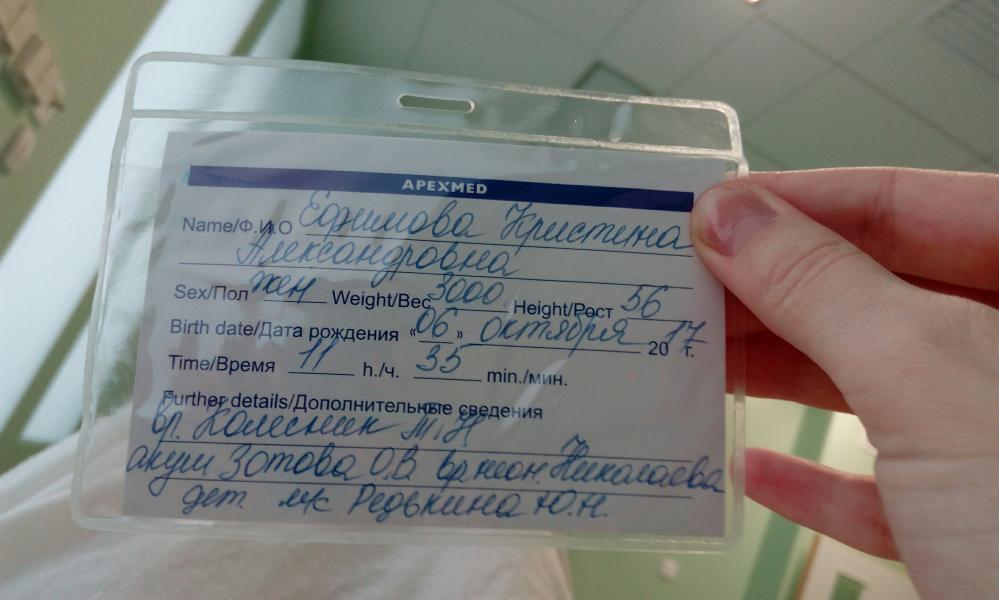 APEXMED
Name/Ф.И.О Ефимова Кристина
Александровна
Sex/Пол жен Weight/Вес 3000 Height/Рост 56
Birth date/Дата рождения «06» октября 2017 г.
Time/Время 11 h./ч. 35 min./мин.
Further details/Дополнительные сведения
вр. Колесник Т.Н
акуш Зотова О.В вр неон. Николаева
дет. м/с Редькина Ю.Н.